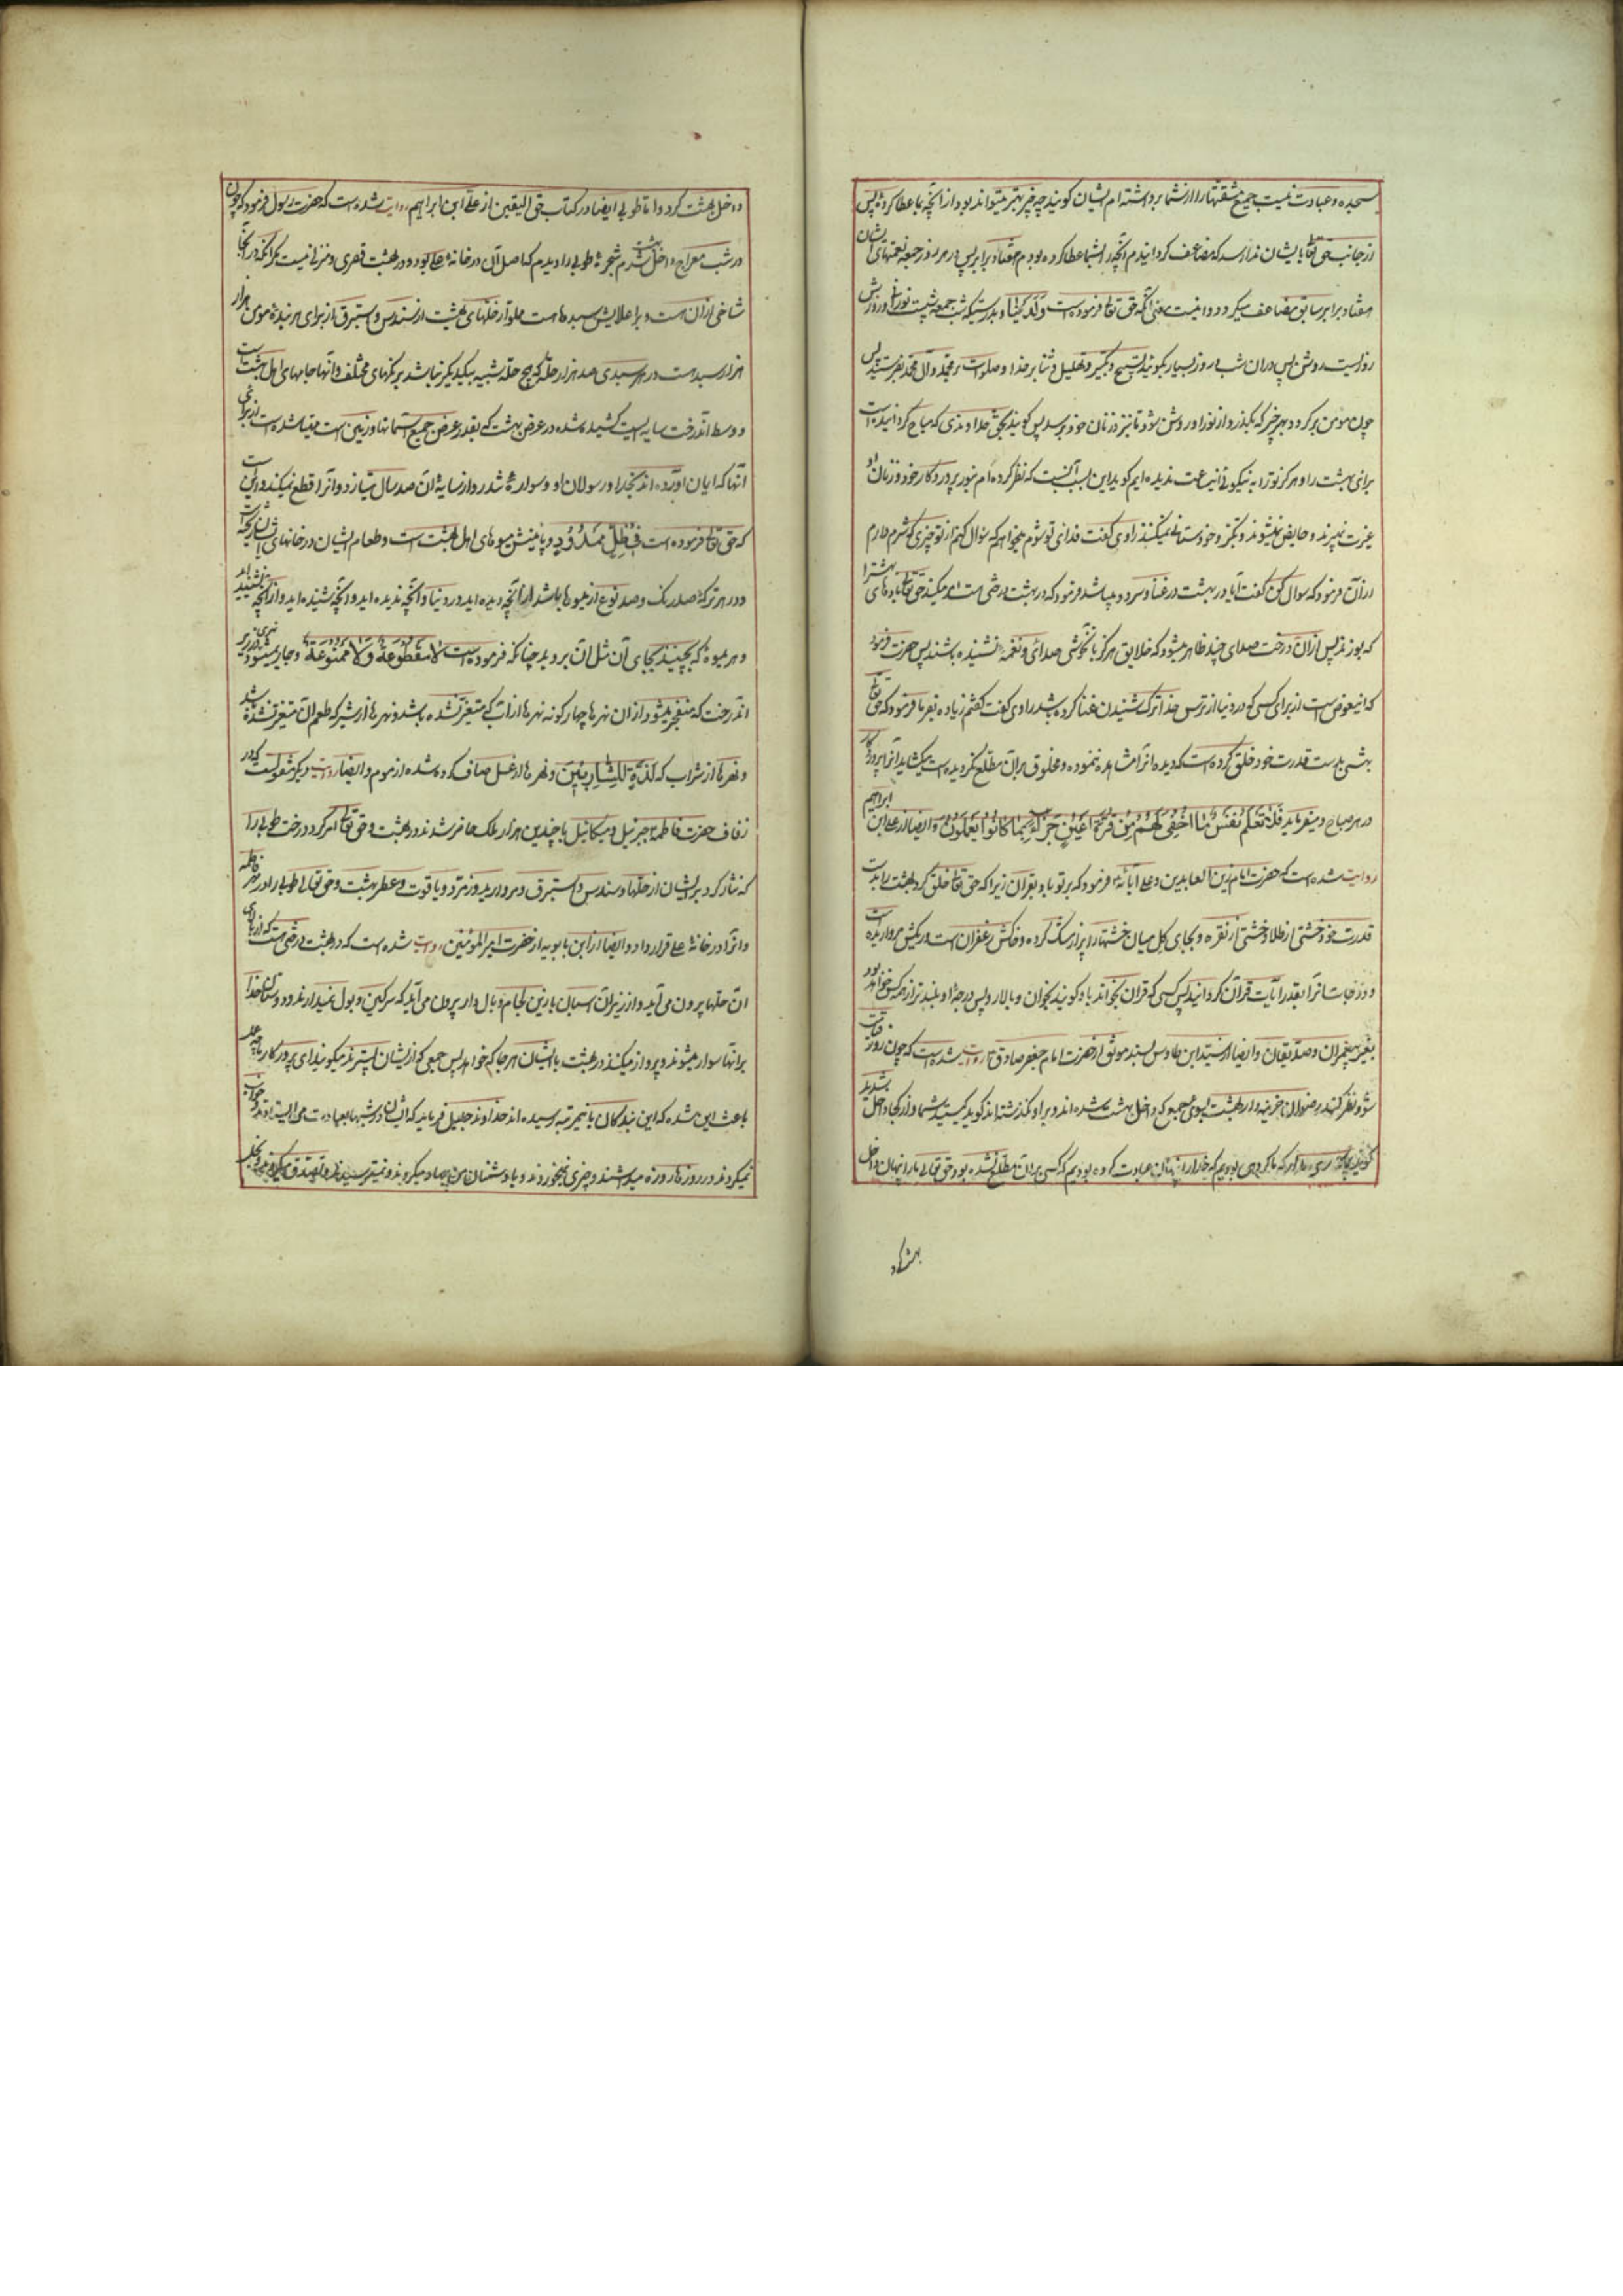 سجده و عبادت نیست جمیع مشقتها را از شما برداشته ام ایشان گویند چه چیز بهتر میتواند بود از آنچه بما عطا کرده پس
از جانب حق تعالی بایشان ندا رسد که مضاعف گردانیدم آنچه را بشما عطا کرده بودم هفتاد برابر پس در هر روز جمعه نعمتهای ایشان
هفتاد برابر سابق مضاعف میگردد و اینست معنی آنکه حق تعالی فرموده است ولدینا مزید بدرستیکه شب جمعه شبیست نورانی و روزش
روزیست روشن پس در آن شب و روز بسیار بگوئید تسبیح و تکبیر و تهلیل و ثنا بر خدا و صلوات بر محمد و آل محمد بفرستید پس
چون مومن برگردد بهر چیز که بگذرد از نور او روشن شود تا بنزد زنان خود برسد پس گویند بحق خداوندی که مباح گردانیده است
برای ما بهشت را هرگز ترا به نیکوئی این ساعت ندیده ایم گوید این بسبب آنست که نظر کرده ام بنور پروردگار خود و زنان او
غیرت نمیبرند و حایض نمیشوند و تکبر و خودستائی نمیکنند راوی گفت فدای تو شوم میخواهم که سؤال کنم از تو چیزی که شرم دارم
از آن فرمود که سوال کن گفت آیا در بهشت غنا و سرود میباشد فرمود که در بهشت درختی هست امر میکند حق تعالی بادهای بهشت را
که بوزند پس از آن درخت صدای چند ظاهر میشود که خلایق هرگز بآن خوشی صدائی و نغمه نشنیده باشند پس حضرت فرمود
که این عوض است از برای کسی که در دنیا از ترس خدا ترک شنیدن غنا کرده باشد راوی گفت گفتم زیاده بفرما فرمود که حق تعالی
بهشتی بدست قدرت خود خلق کرده است که دیده آنرا مشاهده ننموده و مخلوق بر آن مطلع نگردیده است میگشاید آنرا پروردگار
در هر صباح و میفرماید فلا تعلم نفس ما اخفی لهم من قرة اعین جزاء بما کانوا یعملون و ایضا از علی ابن ابراهیم
روایت شده است که حضرت امام زین العابدین و علی آبائه فرمود که بر تو باد بقران زیرا که حق تعالی خلق کرد بهشت را بدست
قدرت خود خشتی از طلا و خشتی از نقره و بجای گل میان خشتها را پر از مشک کرده و خاکش زعفران است و ریگش مروارید است
و درجات آنرا بقدر آیات قرآن گردانید پس کسی که قران بخواند باو گویند بخوان و بالا رو پس درجه او بلندتر از همه کس خواهد بود
بغیر پیغمبران و صدیقان و ایضا از سید ابن طاوس بسند موثق از حضرت امام جعفر صادق روایت شده است که چون روز قیامت
شود نظر کند رضوان خزینه دار بهشت بسوی جمعی که داخل بهشت شده اند و بر او نگذشته اند گوید کیستید شما و از کجا داخل شدید
گویند که ما گروهی بودیم که خدا را پنهان عبادت کرده بودیم که کسی بر آن مطلع نشده بود حق تعالی ما را پنهان داخل
بهشت کرد
داخل بهشت کرد و اما طوبی ایضا در کتاب حق الیقین از علی ابن ابراهیم روایت شده است که حضرت رسول فرمود که چون
در شب معراج داخل بهشت شدم شجره طوبی را دیدم که اصل آن در خانه علی بود و در بهشت قصری و منزلی نیست مگر آنکه در آنجا
شاخی از آن هست و بر اعلایش سبدها هست مملو از حلهای بهشت از سندس و استبرق از برای هر بنده مومن هزار
هزار سبد هست در هر سبدی صد هزار حله که هیچ حله شبیه بیکدیگر نباشد برنگهای مختلف و آنها جامهای اهل بهشت است
و وسط آندرخت سایه ایست کشیده شده در عرض بهشت که بقدر عرض جمیع آسمانها و زمین است مهیا شده است از برای
آنها که ایمان آورده اند بخدا و رسولان او و سواره تندرو از سایه آن صد سال میتازد و آنرا قطع نمیکند و اینست
که حق تعالی فرموده است فی ظل ممدود و پائینش میوهای اهل بهشت است و طعام ایشان در خانهای ایشان آویخته است
و در هر ترکه صد رنگ و صد نوع از میوها باشد از آنچه دیده اید در دنیا و آنچه ندیده اید و آنچه شنیده اید و از آنچه نشنیده اید
و هر میوه که بچینند بجای آن مثل آن بروید چنانکه فرموده است لا مقطوعة ولا ممنوعة و جاری میشود نهری در زیر
آندرخت که منفجر میشود از آن نهرها چهارگونه نهرها از آب که متغیر نشده باشد و نهرها از شیر که طعم آن متغیر نشده باشد
و نهرها از شراب که لذة للشاربین و نهرها از عسل صاف کرده شده از موم و ایضا روایت دیگر منقولست که در
زفاف حضرت فاطمه جبرئیل و میکائیل با چندین هزار ملک حاضر شدند در بهشت و حق تعالی امر کرد درخت طوبی را
که نثار کرد بر ایشان از حلها و سندس و استبرق و مروارید و زمرد و یاقوت و عطر بهشت و حق تعالی طوبی را در مهر فاطمه
و آنرا در خانه علی قرار داد و ایضا از ابن بابویه از حضرت امیرالمؤمنین روایت شده است که در بهشت درختی هست که از بالای
آن حلها بیرون می آید و از زیر آن اسبان با زین و لجام و بال دار بیرون می آید که سرگین و بول نمیدارند و دوستان خدا
بر آنها سوار میشوند و پرواز میکنند در بهشت با ایشان هر جا که خواهند پس جمعی که از ایشان پستترند میگویند ای پروردگار ما چه عمل
باعث این شده که این بندگان باین مرتبه رسیده اند خداوند جلیل فرماید که ایشان در شبها بعبادت می ایستادند و خواب
نمیکردند و در روزها روزه میداشتند و چیزی نمیخوردند و با دشمنان من جهاد میکردند و نمیترسیدند و تصدق میکردند و بخل